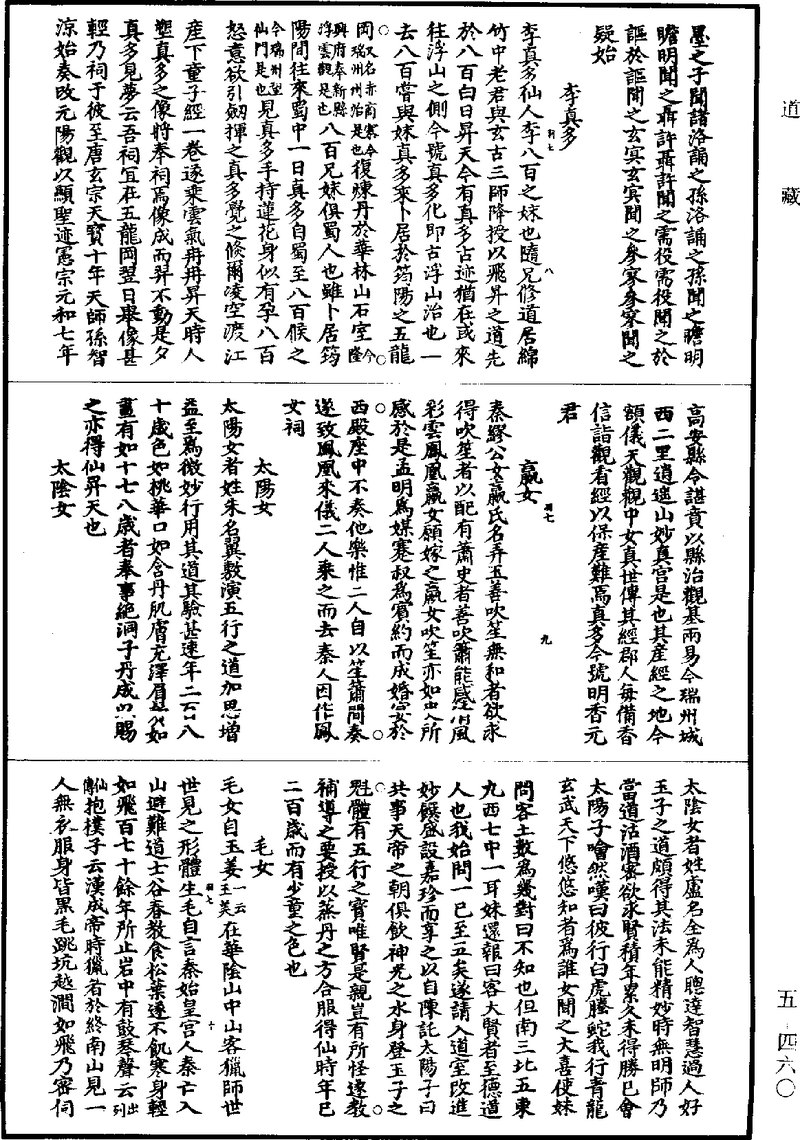 道藏
墨之子聞諸洛誦之孫洛誦之孫聞之瞻明
瞻明聞之聶許聶許聞之需役需役聞之於
謳於謳聞之玄冥玄冥聞之參寥參寥聞之
疑始
李真多
八
李真多仙人李八百之妹也隨兄修道居綿
竹中老君與玄古三師降授以飛昇之道先
於八百白日昇天今有真多古迹猶在或來
往浮山之側今號真多化即古浮山治也一
去八百嘗與妹真多來卜居於筠陽之五龍
岡又名赤岡寨今瑞州州治是也復煉丹於華林山石室今隆
興府奉新縣浮雲觀是也八百兄妹俱蜀人也雖卜居筠
陽間往來蜀中一日真多自蜀至八百候之
今瑞州望仙門是也見真多手持蓮花身似有孕八百
怒意欲引劒揮之真多覺之倏爾凌空渡江
産下童子經一卷遂乘雲氣冉冉昇天時人
塑真多之像將奉祠焉像成而舁不動是夕
真多見夢云吾祠宜在五龍岡翌日舉像甚
輕乃祠于彼至唐玄宗天寶十年天師孫智
涼始奏改元陽觀以顯聖迹憲宗元和七年
高安縣令諶賁以縣治觀基兩易今瑞州城
西二里逍遙山妙真宫是也其産經之地今
額儀天觀觀中女真世傳其經郡人每備香
信詣觀看經以保産難焉真多今號明香元
君
嬴女
九
秦繆公女嬴氏名弄玉善吹笙無和者欲求
得吹笙者以配有蕭史者善吹簫能感清風
彩雲鳳凰嬴女願嫁之嬴女吹笙亦如史所
感於是孟明爲媒蹇叔爲賓約而成婚宴於
西殿座中不奏他樂惟二人自以笙簫間奏
遂致鳳凰來儀二人乘之而去秦人因作鳳
女祠
太陽女
太陽女者姓朱名翼敷演五行之道加思增
益至爲微妙行用其道其驗甚速年二百八
十歲色如桃華口如含丹肌膚充澤眉鬢如
畫有如十七八歲者奉事絶洞子丹成以賜
之亦得仙昇天也
太陰女
太陰女者姓盧名全爲人聰達智慧過人好
玉子之道頗得其法未能精妙時無明師乃
當道沽酒密欲求賢積年累久未得勝已會
太陽子喻然嘆曰彼行白虎螣蛇我行青龍
玄武天下悠悠知者爲誰女聞之大喜使妹
問客土數爲幾對曰不知也但南三北五東
九西七中一耳妹還報曰客大賢者至德道
人也我始問一已至五矣遂請入道室改進
妙饌盛設嘉珍而享之以自陳託太陽子曰
共事天帝之朝俱飲神光之水身登玉子之
魁體有五行之寶唯賢是親豈有所怪遂教
補導之要授以蒸丹之方合服得仙時年已
二百歲而有少童之色也
毛女
十
毛女自玉姜一云玉美在華陰山中山客獵師世
世見之形體生毛自言秦始皇宫人秦亡入
山避難道士谷春教食松葉遂不飢寒身輕
如飛百七十餘年所止岩中有鼓琴聲云出列
仙傳抱樸子云漢成帝時獵者於終南山見一
人無衣服身皆黑毛跳坑越澗如飛乃密伺
五-四六〇